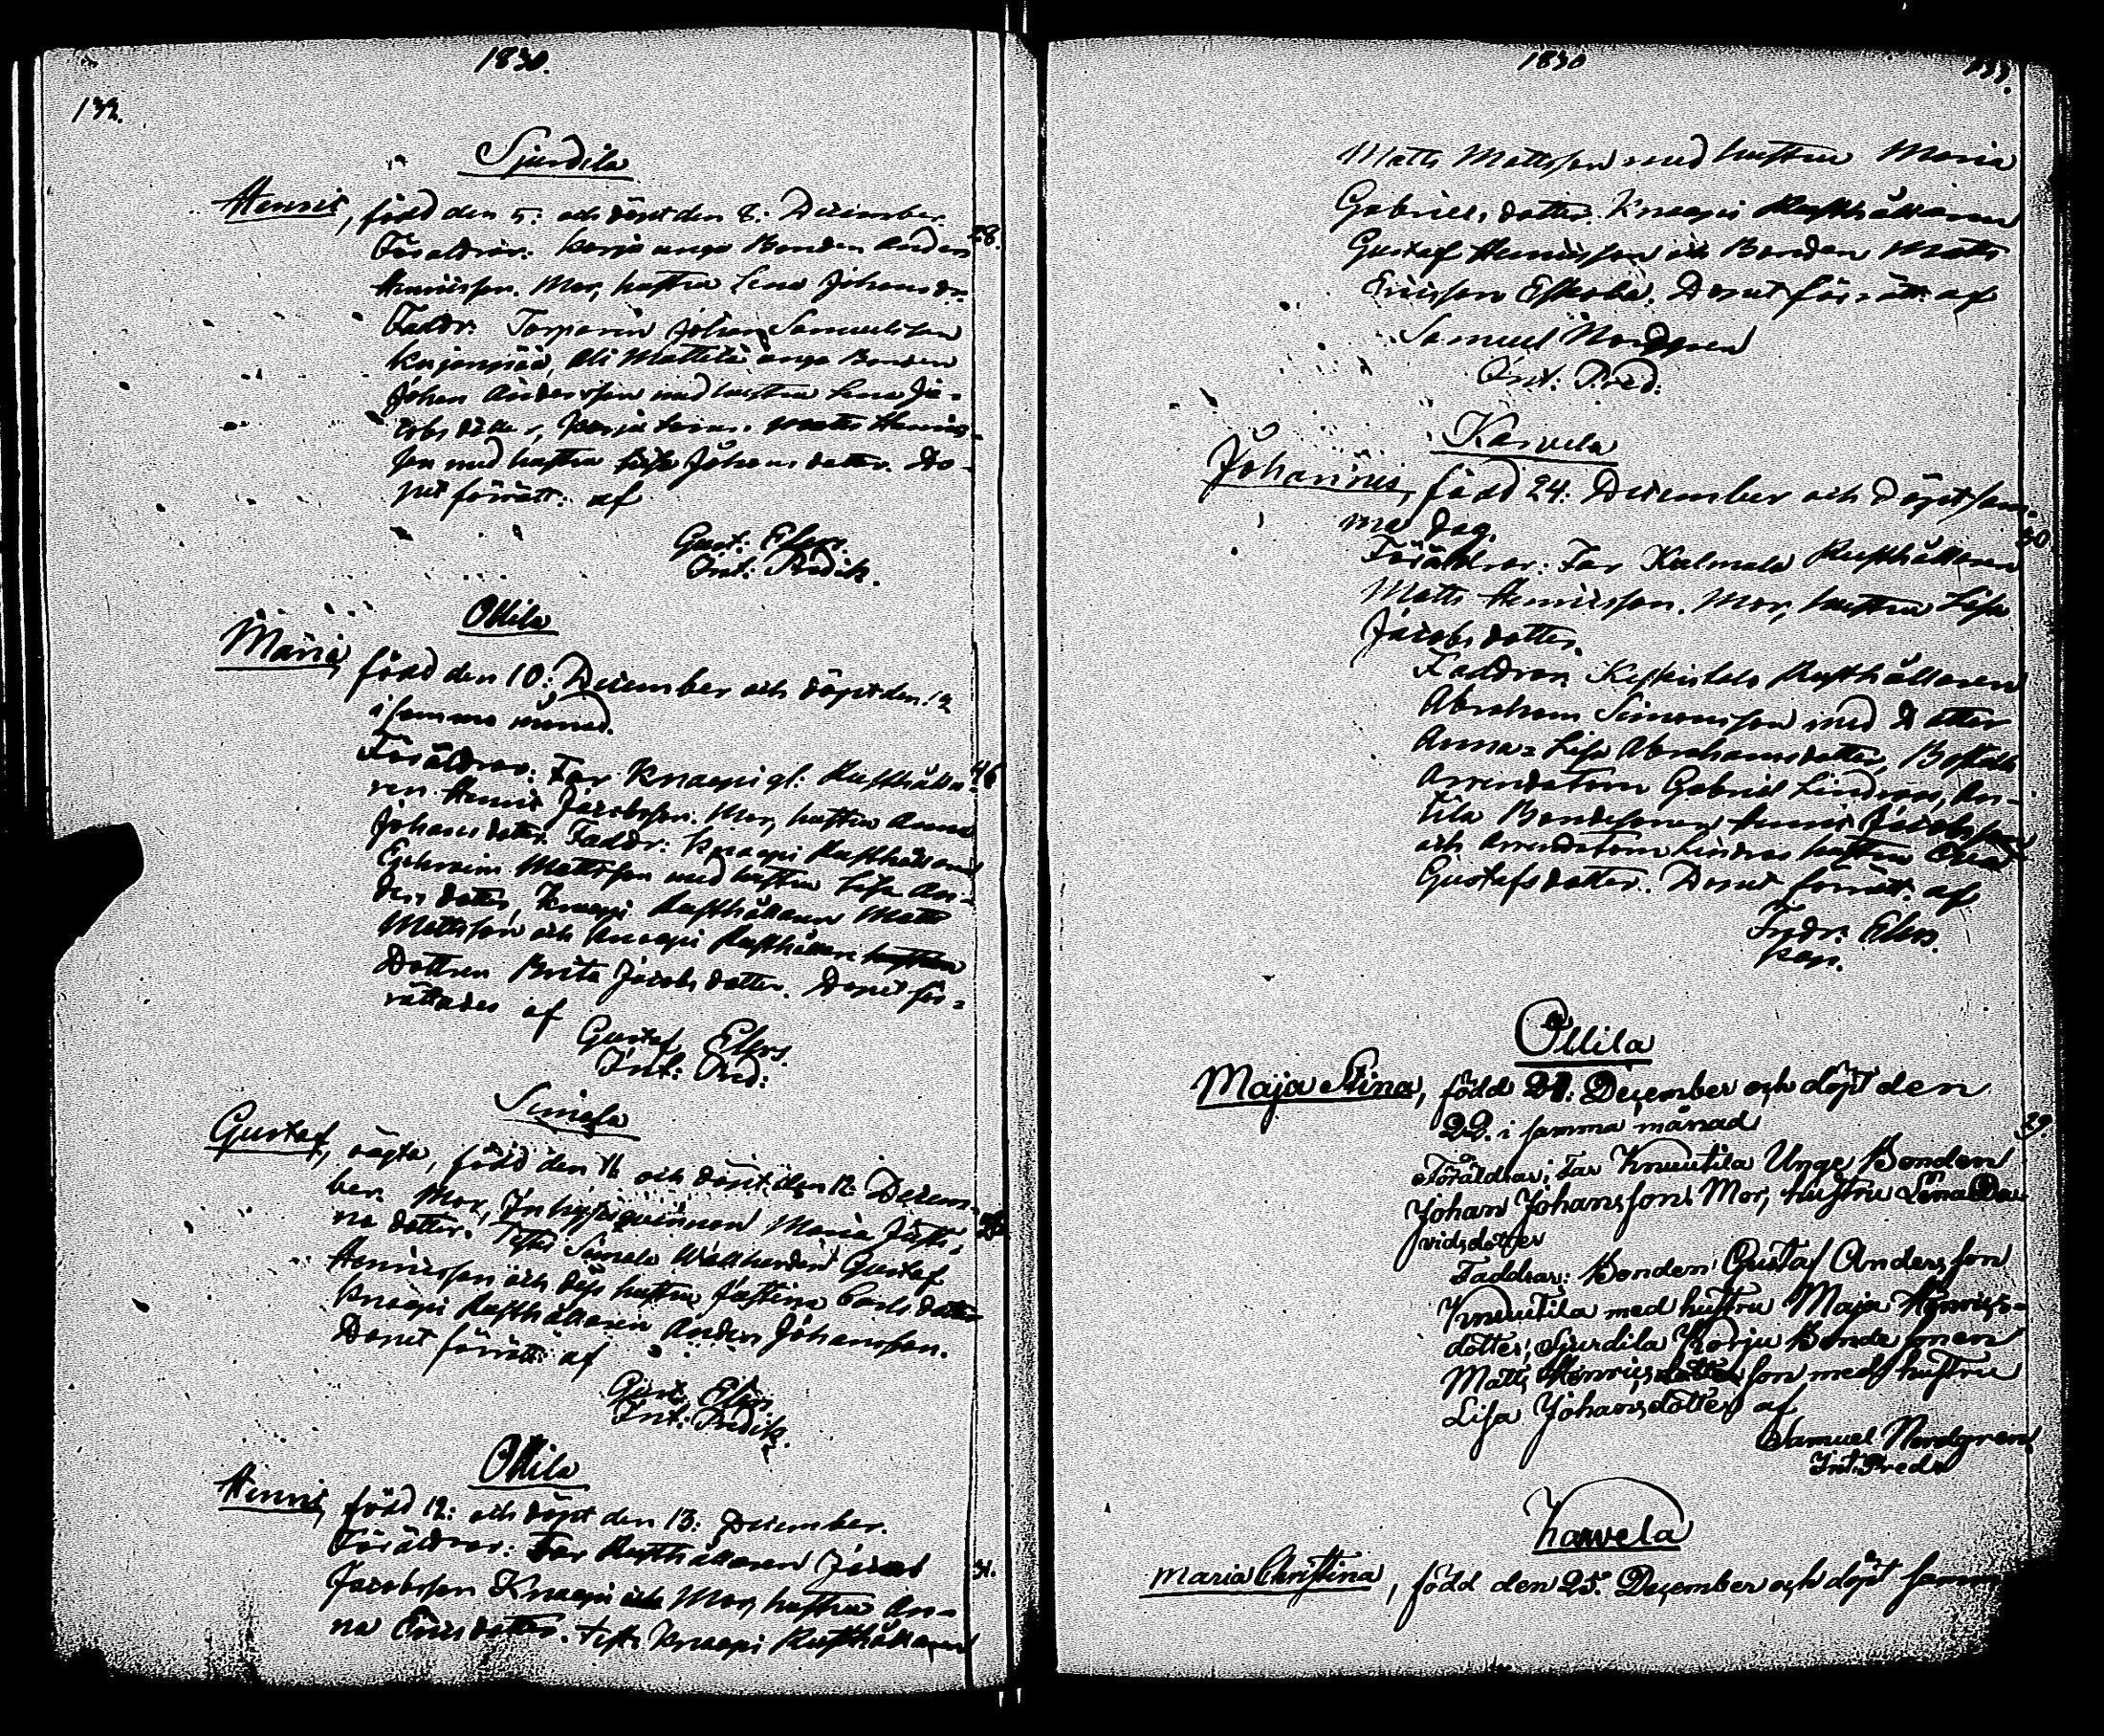 1830.
132.
Sjurdila
Henric, född den 5: och döpt den 8. December.
28.
Föräldrar: Korju unge Bonden Anders
Henricsson. Mor, hustru Lena Johansdr.
Faddr: Torparen Johan Samuelsson
Mattila unge Bonden
Johan Andersson med hustru Lena Ja-
cobsdotter, Korju Matts Henrics-
son med hustru Lisa Johansdotter. Do-
pet förrätt: af
Gust: Elers.
Int: Predik.
Ollila
Maria, född den 10: December och döpt den 12
i samma månad.
46
Föräldrar: Far Knaapi gl: Rusthålla-
ren Henric Jacobsson. Mor, hustru Anna
Johansdotter. Faddr: Knaapi Rusthållaren
Ephraim Mattsson med hustru Lisa An-
dersdotter, Knaapi Rusthållaren Matts
Mattsson och Knaapi Rusthållare
Dottren Brita Jacobsdotter. Dopet för-
rättades af
Gustaf Elers.
Int: Pred:
Simola
Gustaf, oägta, född den 11 och döpt den 12 Decem-
ber. Mor, Inhysesqvinnan Maria Justi-
na dotter. Test: Simola Wallherden Gustaf
Henricsson och dess hustru Justina Carlsdotter
Knaapi Rusthållaren Anders Johansson.
Dopet förrätt: af
Gust. Elers
Int: Predik.
Ollila
Henric, född 12: och döpt den 13: December.
31.
Föräldrar: Far Rusthållaren Jacob
Jacobsson Knaapi Mor, hustru An-
na Ericsdotter. Test: Knaapi Rusthållaren
1830
133.
Matts Mattsson med hustru Maria
Gabrielsdotter. Knaapi Rusthållaren
Gustaf Henricsson och Bonden Matts
Ericsson Eskola. Dopet förrätt: af
Samuel Nordgren
Int: Pred:
Karvela
Johannes, född 24: December och döpt sam-
ma dag.
30
Föräldrar: Far Kulmala Rusthållaren
Matts Henricsson. Mor, hustru Lisa
Jacobsdotter.
Faddrar Rusthållaren
Abraham Simonsson med Dotter
Anna-Lisa Abrahamsdotter, Boställs
Arrendatorn Gabriel Lindroos, An-
tila Bondesonen Henric Jacobsson
och Arrendatorn Lindroos hustru
Gustafsdotter. Dopet förrätt: af
Fredr: Elers.
Kap.
Ollila
Maja Stina, född 21: December och döpt den
22. i samma månad
39.
Föräldrar: Far Knuutila Unge Bonden
Johan Johansson. Mor, hustru Lena Da-
vidsdotter
Faddrar: Bonden Gustaf Andersson
Knuutila med hustru Maja Henrics-
dotter, Sjurdila Korju Bonde sonen
Matts Henricsson med hustru
Lisa Johansdotter af
Samuel Nordgren
Int. Pred:
Karvela
Maria Christina, född den 25. December och döpt samma